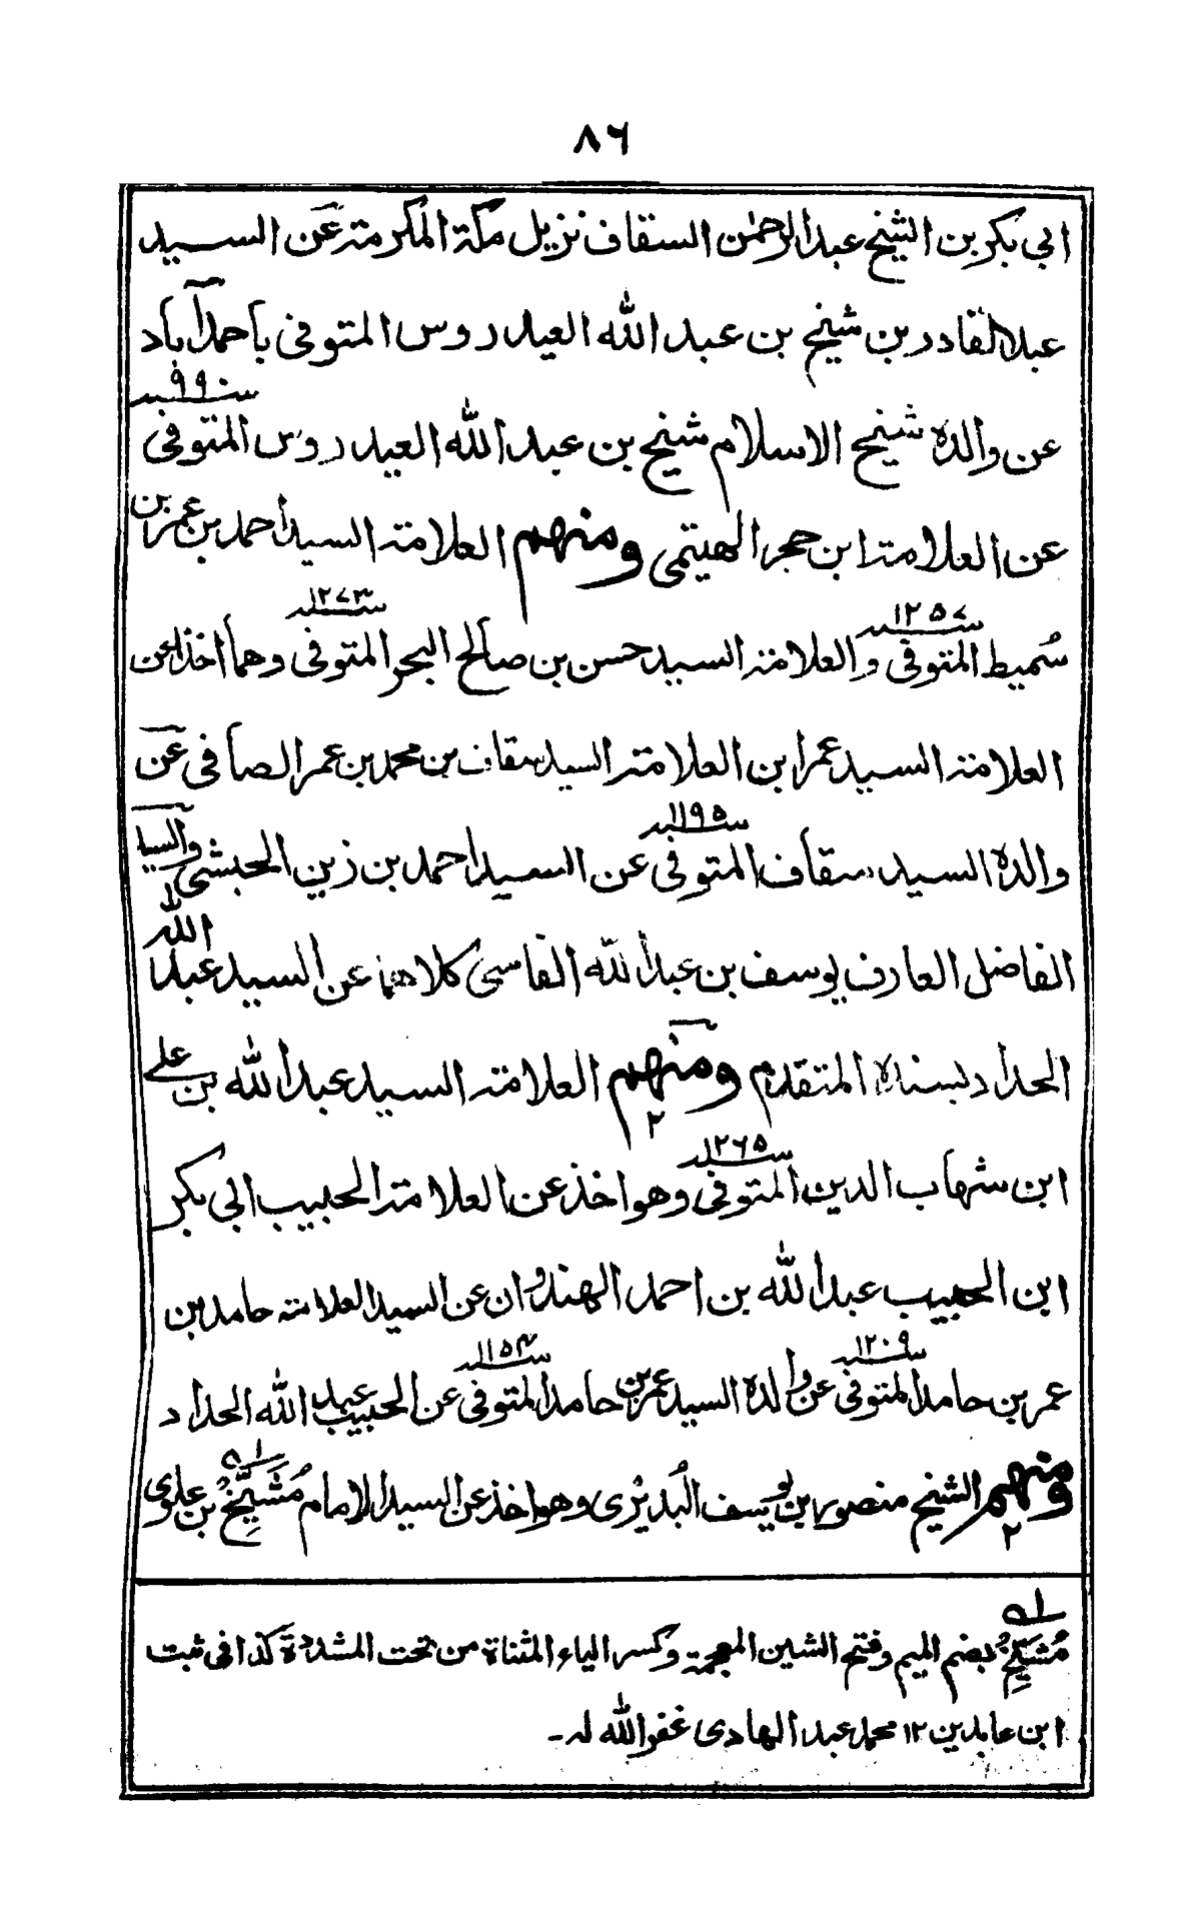 ٨٦
ابي بكر بن الشيخ عبد الرحمٰن السقاف نزيل مكة المكرمة عن السيد
عبد القادر بن شيخ بن عبد الله العيدروس المتوفى بأحمد آباد
سنة ٩٩٠
عن والده شيخ الاسلام شيخ بن عبد الله العيدروس المتوفى
عن العلامة ابن حجر الهيتمي ومنهم العلامة السيد احمد بن عمر بن
سنة ١٢٥٧ سنة ١٢٧٣
سُميط المتوفى والعلامة السيد حسن بن صالح البحر المتوفى وهما اخذا عن
العلامة السيد عمر ابن العلامة السيد سقاف بن محمد بن عمر الصافى عن
سنة ١١٩٥
والده السيد سقاف المتوفى عن السيد احمد بن زين الحبشي والسيد
الفاضل العارف يوسف بن عبد الله الفاسى كلاهما عن السيد عبد الله
الحداد بسنده المتقدم ومنهم ٢ العلامة السيد عبد الله بن علي
سنة ١٢٦٥
ابن شهاب الدين المتوفى وهو اخذ عن العلامة الحبيب ابي بكر
ابن الحبيب عبد الله بن احمد الهندوان عن السيد العلامة حامد بن
سنة ١٢٠٩ سنة ١١٥٤
عمر بن حامد المتوفى عن والده السيد عمر بن حامد المتوفى عن الحبيب عبد الله الحداد
ومنهم ٢ الشيخ منصور بن يوسف البُديْرى وهو اخذ عن السيد الامام مُشَيِّخْ بن علوى
مُشَيِّخْ بضم الميم وفتح الشين المعجمة وكسر الياء المثناة من تحت المشددة كذا فى ثبت
ابن عابدين ١٢ محمد عبد الهادى غفر الله له۔